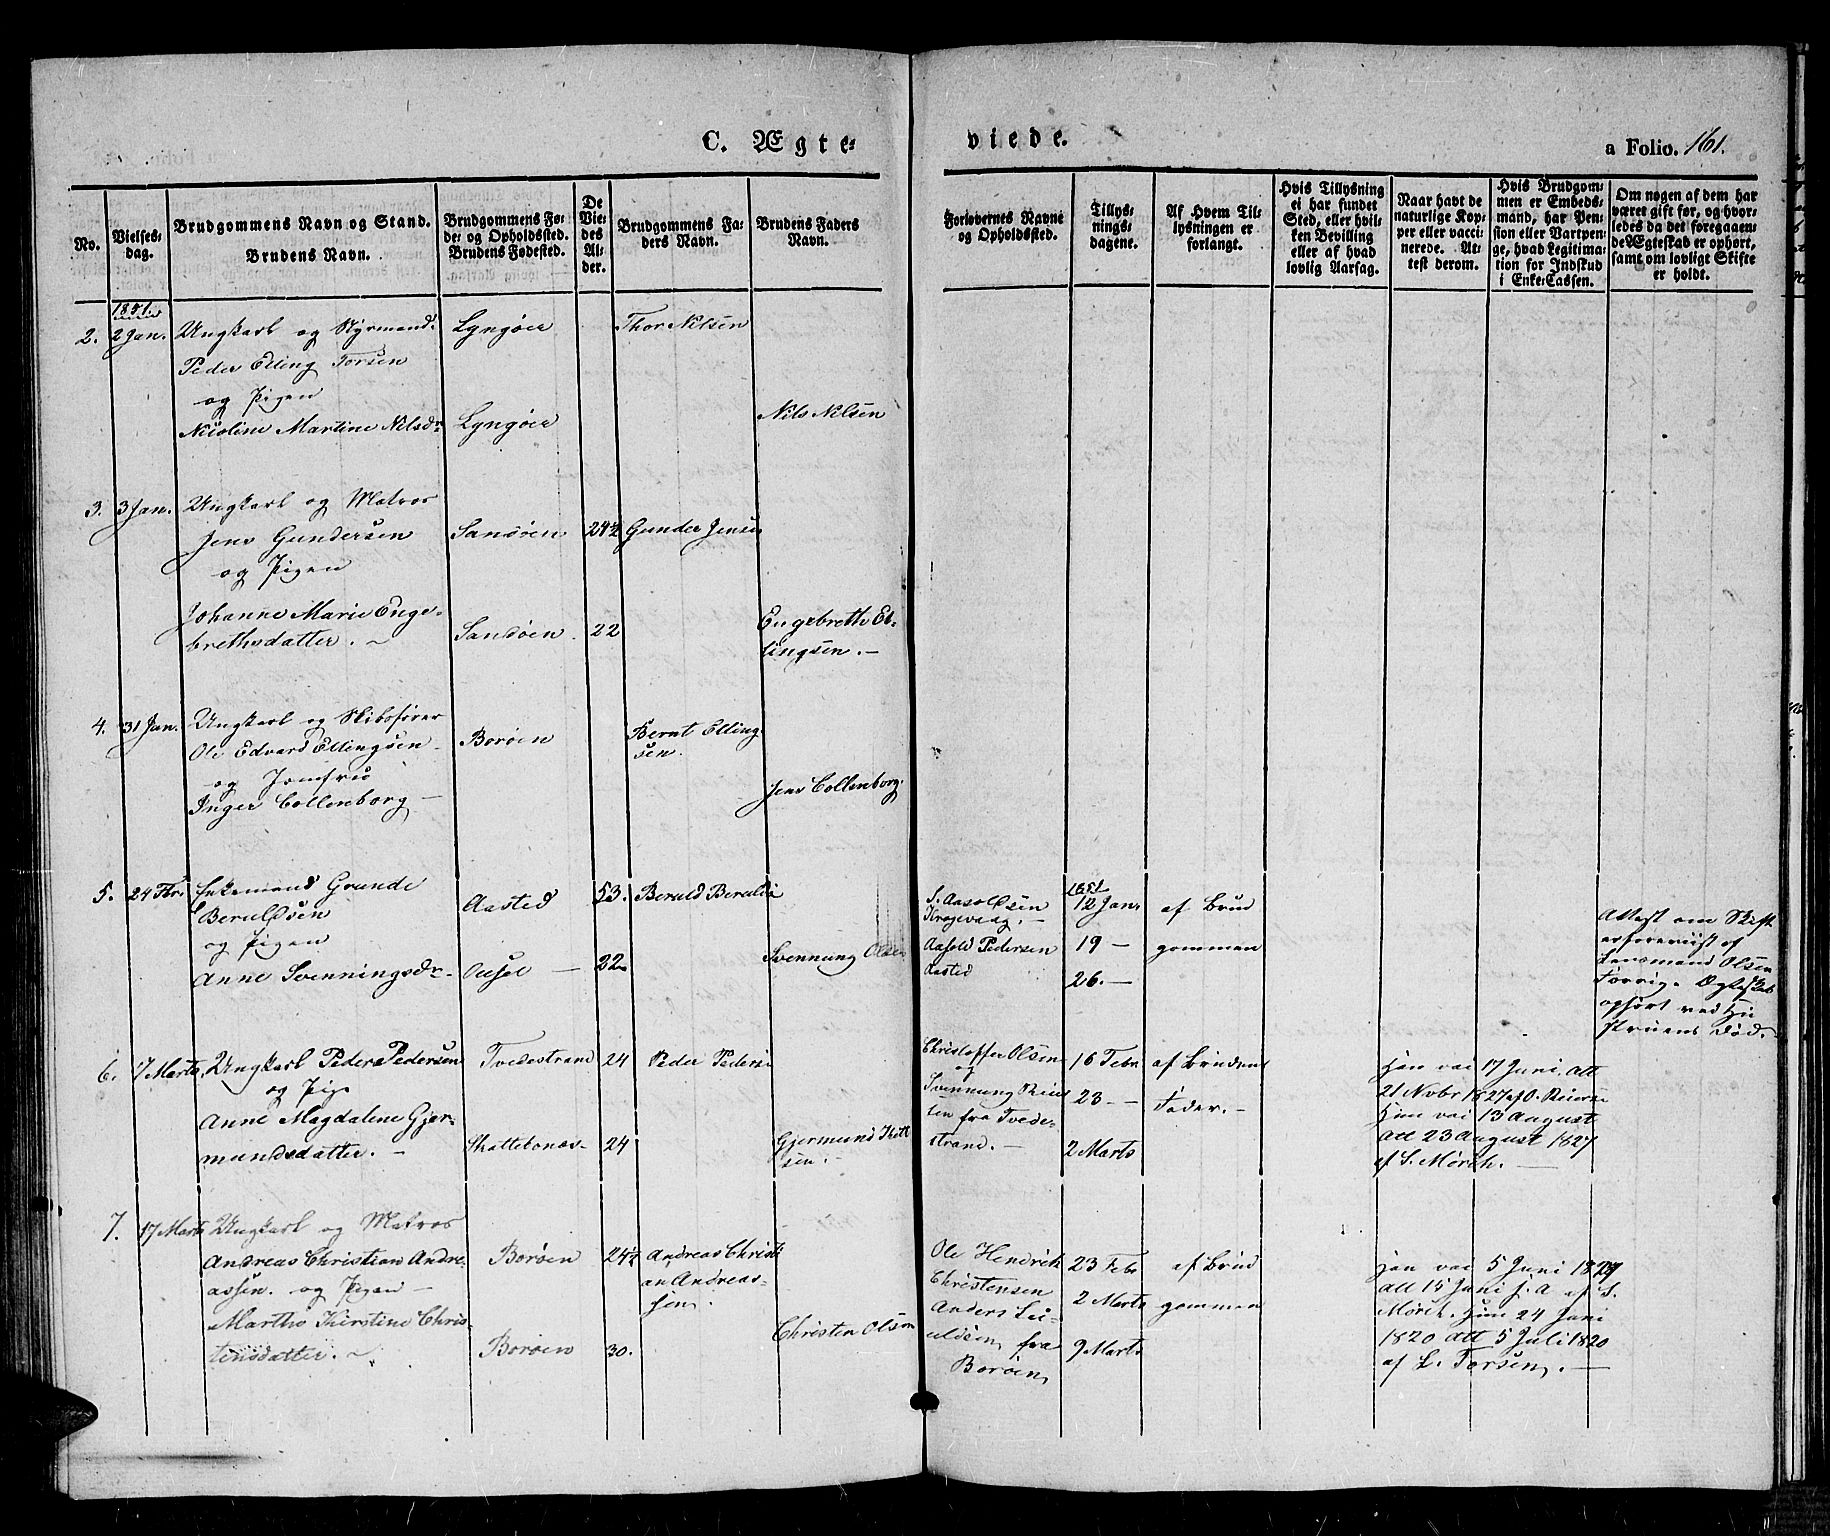 C. Ægte-
viede.
a Folio. 161.
No.
Vielses-
dag.
Brudgommens Navn og Stand.
Brudens Navn.
Brudgommens Fø-
de- og Opholdssted.
Brudens Fødested.
De
Vie-
des
Al-
der.
Brudgommens Fa-
ders Navn.
Brudens Faders
Navn.
Forlovernes Navne
og Opholdssted.
Tillys-
nings-
dagene.
Af Hvem Til-
lysningen er
forlangt.
Hvis Tillysning
ei har fundet
Sted, eller hvil-
ken Bevilling
eller af hvad
lovlig Aarsag.
Naar havt de
naturlige Kop-
per eller vacci-
nerede. At-
test derom.
Hvis Brudgom-
men er Embeds-
mand, har Pen-
sion eller Vartpen-
ge, hvad Legitima-
tion for Indskud
i Enke-Cassen.
Om nogen af dem har
været gift før, og hvor-
ledes da det foregaaen-
de Ægteskab er ophørt,
samt om lovligt Skifte
er holdt.
1851
2. 2 Jan. Ungkarl og Styrmand Lyngøer Thor Nilsen
Peder Elling Torsen
og Pigen
Nicoline Martine Nilsdr Lyngøer Nils Nilsen
3. 3 Jan. Ungkarl og Matros
Jens Gundersen Sandøen 24½ Gunder Jensen
og Pigen
Johanne Marie Enge-
brethsdatter. Sandøen. 22 Engebreth El-
lingsen.
4. 31 Jan. Ungkarl og Skibsfører
Ole Edvard Ellingsen Borøen Bernt Elling
sen.
og Jomfru
Inger Collenborg Jens Collenborg.
5. 24 Fbr. Enkemand Grunde
Beruldsen Aasted 53. Beruld Beruldse
og Pigen
Anne Svenningsdr 22 Svennung Olsen
S. Aasoldsen
Krogevaag.
Aasold Pedersen
Aasted
1851
12 Jan.
19
26.
af Brud
gommen
Attest om Skift
erforeviist af
Lensmand Olsen
Ægteskab
ophørt ved Hu
struens Død.
6. 7 Marts Ungkarl Peder Pedersen Tvedestrand 24 Peder Peders
og Pige
Anne Magdalene Gjer-
mundsdatter. Skottebonæs 24 Gjermund Kitt
sen.
Christoffer Olsen
og
Svennung
sen fra Tvede-
strand.
16 Febr
23
2 Marts
af Brudens
Fader.
Han vac 17 Juni, Att
21 Novbr 1827 af O. Reierse
Hun vac 13 August
Att 23 August 1827
af S. Mørch.
7. 17 Marts Ungkarl og Matros
Andreas Christian Andre-
assen. og Pigen Borøen 24½ Andreas Christi
an Andreas-
sen.
Marthe Kirstine Chris-
tensdatter. Borøen 30. Christen Olsen
Ole Hendrik
Christensen
Anders
fra
Borøen
23 Febr
2 Marts
9 Marts
af Brud
gommen
Han vac 5 Juni 1827
Att 15 Juni s. A af S.
Mørch. Hun 24 Juni
1820 Att 5 Juli 1820
af L. Torsen.